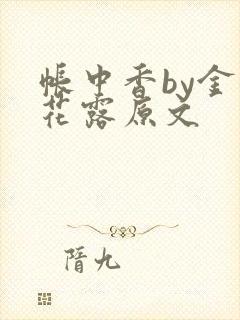 帐中香by金
花露原文
隋九